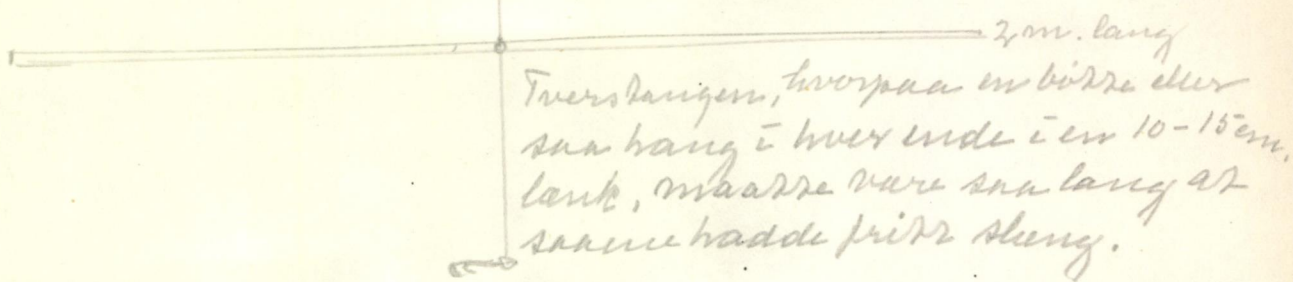 2 m. lang
Tverstangen, hvorpaa en bøtte eller
saa hang i hver ende i en 10-15 cm.
lænk, maatte være saa lang at
saaene hadde fritt sleng.